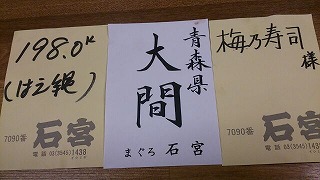 198.0K
(はえ縄)
7090番
石宮
電話 03(3545)1438
青森県
大間
まぐろ 石宮
梅乃寿司
様
7090番
石宮
電話 03(3545)1438